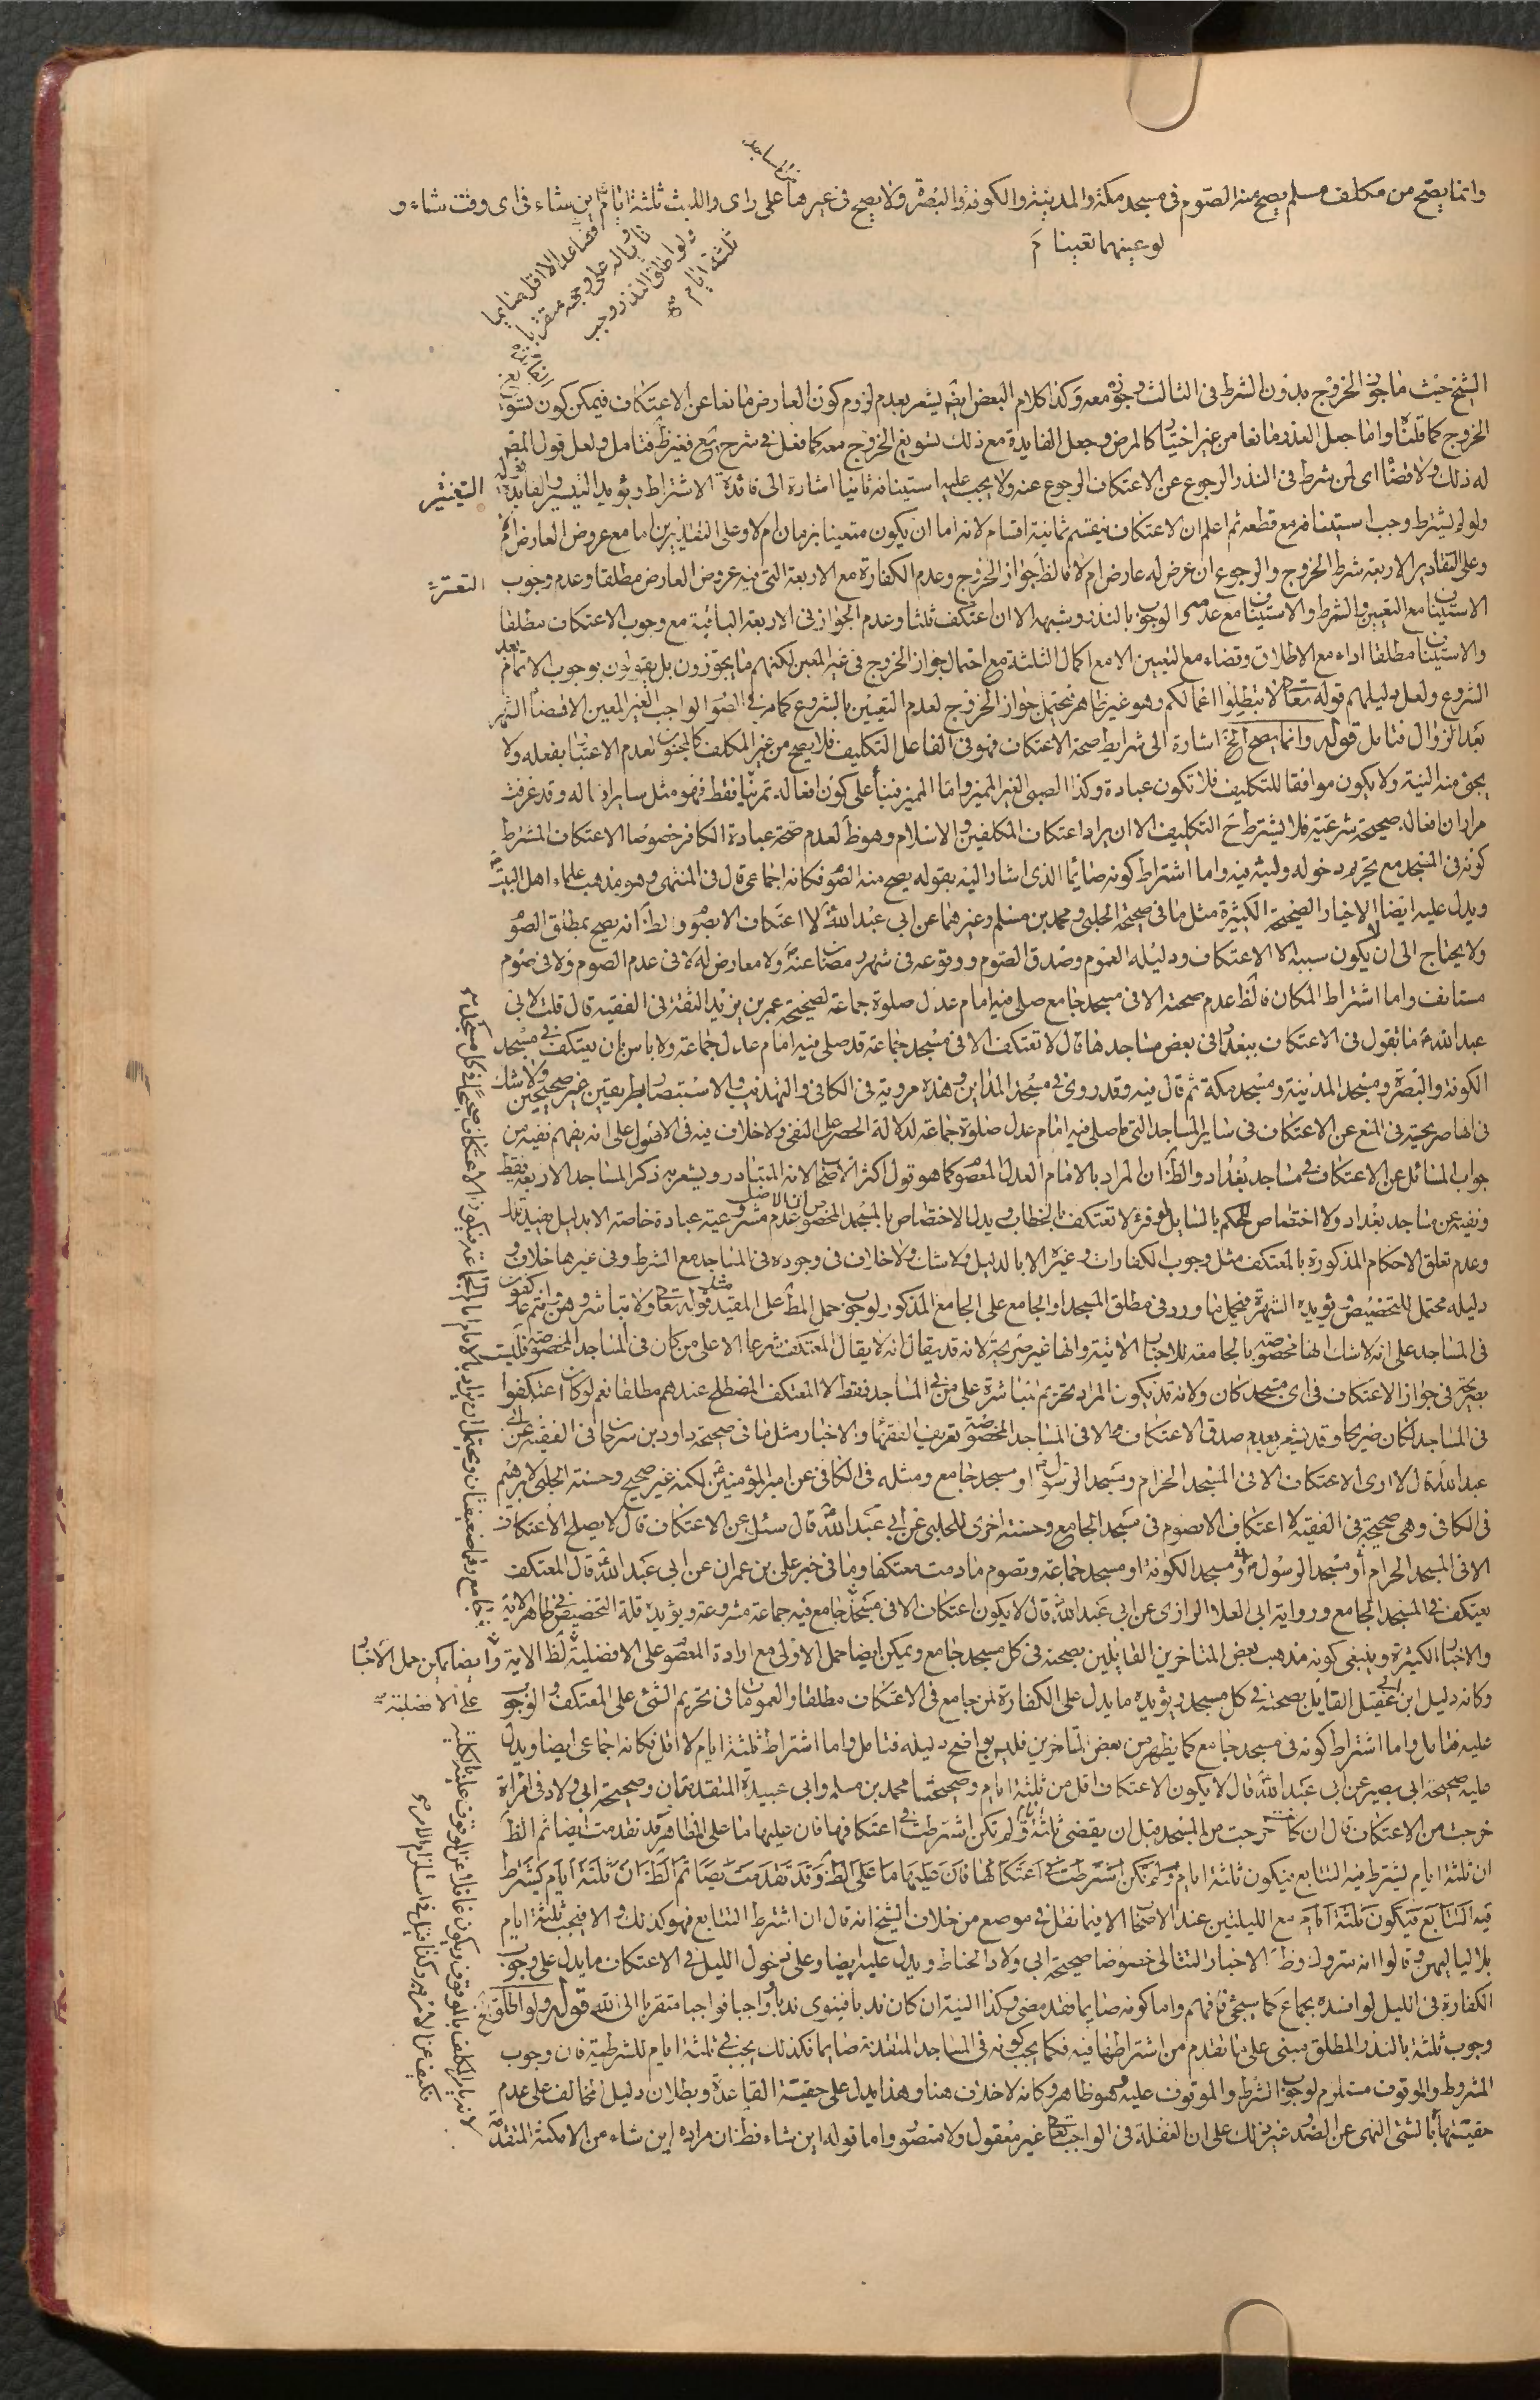 وانما يصح من مكلف مسلم يصح منه الصوم فى مسجد مكة والمدينة والكوفة والبصرة ولا يصح فى غيرها على راى واللبث ثلثة ايام اين شاء فى اى وقت شاء و
لو عينهما تعينا م
فصاعدا لا اقل صائما
ناويا له على وجهه متقربا
ولو اطلق النذر وجب
ثلثة ايام
الشيخ حيث ما جوز الخروج بدون الشرط فى الثالث وجوزه معه وكذا كلام البعض ايضا يشعر بعدم لزوم كون العارض مانعا عن الاعتكاف فيمكن كون
الخروج كما قلنا واما جعل العذر مانعا من غير اختيار كالمرض وجعل الفايدة مع ذلك تسويغ الخروج معه كما فعل فى شرح يع فغير ظ فتامل ولعل قول المص
له ذلك ولا قضاء اى لمن شرط فى النذر الرجوع عن الاعتكاف الرجوع عنه ولا يجب عليه استينافه ثانيا اشارة الى فائدة الاشتراط ويؤيد
ولو لم يشترط وجب استينافه مع قطعه ثم اعلم ان الاعتكاف ينقسم ثمانية اقسام لانه اما ان يكون متعينا بزمان ام لا وعلى التقديرين اما مع عروض العارض ام
وعلى التقادير الاربعة شرط الخروج والرجوع ان عرض له عارض ام لا فالظ جواز الخروج وعدم الكفارة مع الاربعة التى فيه عروض العارض مطلقا وعدم وجوب
الاستيناف مع التعيين والشرط والاستيناف مع عدمهما الوجوب بالنذر وشبهه الا ان اعتكف ثلثا وعدم الجواز فى الاربعة الباقية مع وجوب الاعتكاف مطلقا
والاستيناف مطلقا اداء مع الاطلاق وقضاء مع التعيين الا مع اكمال الثلثة مع احتمال جواز الخروج فى غير المعين لكنهم ما يجوزون بل يقولون بوجوب الاتمام بعد
الشروع ولعل دليلهم قوله تعالى لا تبطلوا اعمالكم وهو غير ظاهر فيحتمل جواز الخروج لعدم التعيين بالشروع كما مر فى الصوم الواجب الغير المعين الا قضاء الشهر
بعد الزوال فتامل قوله وانما يصح الخ اشارة الى شرايط صحة الاعتكاف فهو فى الفاعل التكليف فلا يصح من غير المكلف كالمجنون لعدم الاعتبار بفعله ولا
يجئ منه النية ولا يكون موافقا للتكليف فلا تكون عبادة وكذا الصبى الغير المميز واما المميز فبناء على كون افعاله تمرينا فقط فهو مثل ساير افعاله وقد عرفت
مرارا ان افعاله صحيحة شرعية فلا يشترط ح التكليف الا ان يراد اعتكاف المكلفين والاسلام وهو ظ لعدم صحة عبادة الكافر خصوصا الاعتكاف المشترط
كونه فى المسجد مع تحريم دخوله ولبثه فيه واما اشتراط كونه صائما الذى اشار اليه بقوله يصح منه الصوم فكانه اجماعى قال فى المنتهى وهو مذهب علماء اهل البيت
ويدل عليه ايضا الاخبار الصحيحة الكثيرة مثل ما فى صحيحة الحلبى ومحمد بن مسلم وغيرهما عن ابى عبد الله لا اعتكاف الا بصوم والظ انه يصح بمطلق الصوم
ولا يحتاج الى ان يكون سببه الا الاعتكاف ودليله العموم وصدق الصوم ووقوعه فى شهر رمضان عنهم ولا معارض له لا فى عدم الصوم ولا فى صوم
مستانف واما اشتراط المكان فالظ عدم صحته الا فى مسجد جامع صلى فيه امام عدل صلوة جماعة لصحيحة عمر بن يزيد الثقة فى الفقيه قال قلت لابى
عبد الله ما تقول فى الاعتكاف ببغداد فى بعض مساجدها قال لا تعتكف الا فى مسجد جماعة قد صلى فيه امام عدل جماعة ولا باس بان يعتكف فى مسجد
الكوفة والبصرة ومسجد المدينة ومسجد مكة ثم قال فيه وقد روى فى مسجد المداين وهذه مروية فى الكافى والتهذيب والاستبصار بطريقين غير صحيحين ولا شك
فى انها صريحة فى المنع عن الاعتكاف فى ساير المساجد التى ما صلى فيه امام عدل صلوة جماعة لدلالة الحصر على النفى ولا خلاف فيه فى الاصول على انه يفهم نفيه من
جواب السائل عن الاعتكاف فى مساجد بغداد والظ ان المراد بالامام العدل المعصوم كما هو قول اكثر الاصحاب لانه المتبادر ويشعر به ذكر المساجد الاربعة فقط
ونفيه عن مساجد بغداد ولا اختصاص للحكم بالسايل لو قرئ لا تعتكف بالخطاب ويدل الاختصاص بالمسجد المخصوص ان الاصل عدم مشروعية عبادة خاصة الا بدليل
وعدم تعلق الاحكام المذكورة بالمعتكف مثل وجوب الكفارات وغيره الا بالدليل ولا شك ولا خلاف فى وجوده فى المساجد مع الشرط وفى غيرها خلاف و
دليله محتمل للتخصيص ويؤيده الشهرة فيحمل ما ورد فى مطلق المسجد او الجامع على الجامع المذكور لوجوب حمل المطلق على المقيد مثل قوله تعالى ولا تباشروهن وانتم عاكفون
فى المساجد على انه لا شك انها مخصوصة بالجامعة للاخبار الاتية وانها غير صريحة لانه قد يقال انه لا يقال المعتكف شرعا الا على من كان فى المساجد المخصوصة فليست
بصريحة فى جواز الاعتكاف فى اى مسجد كان ولانه قد يكون المراد تحريم المباشرة على من فى المساجد فقط لا المعتكف المصطلح عندهم مطلقا نعم لو كان اعتكفوا
فى المساجد لكان صريحا وقد يشعر بعدم صدق الاعتكاف الا فى المساجد المخصوصة تعريف الفقهاء والاخبار مثل ما فى صحيحة داود بن سرحان فى الفقيه عن ابى
عبد الله قال لا ارى الاعتكاف الا فى المسجد الحرام ومسجد الرسول او مسجد جامع ومثله فى الكافى عن امير المؤمنين لكنه غير صحيح وحسنة الحلبى لابرهيم
فى الكافى وهى صحيحة فى الفقيه لا اعتكاف الا بصوم فى مسجد الجامع وحسنة اخرى للحلبى عن ابى عبد الله قال سئل عن الاعتكاف قال لا يصلح الاعتكاف
الا فى المسجد الحرام او مسجد الرسول او مسجد الكوفة او مسجد جماعة وتصوم ما دمت معتكفا وما فى خبر على بن عمران عن ابى عبد الله قال المعتكف
يعتكف فى المسجد الجامع ورواية ابى العلا الرازى عن ابى عبد الله قال لا يكون اعتكاف الا فى مسجد جامع فيه جماعة مشروعة ويؤيده قلة التخصيص فى ظاهر الاية
والاخبار الكثيرة وينبغى كونه مذهب بعض المتاخرين القايلين بصحته فى كل مسجد جامع ويمكن ايضا حمل الاولى مع ارادة المعصوم على الافضلية لظ الاية وايضا يمكن حمل الاخبار
على الافضلية
وكانه دليل ابن ابى عقيل القايل بصحته فى كل مسجد ويؤيده ما يدل على الكفارة لمن جامع فى الاعتكاف مطلقا والعمومات فى تحريم الشئ على المعتكف والوجوب
عليه فتامل واما اشتراط كونه فى مسجد جامع كما يظهر من بعض المتاخرين فليس بواضح دليله فتامل واما اشتراط ثلثة ايام لا اقل فكانه اجماعى ايضا ويدل
عليه صحيحة ابى بصير عن ابى عبد الله قال لا يكون الاعتكاف اقل من ثلثة ايام وصحيحتا محمد بن مسلم وابى عبيدة المتقدمتان وصحيحة ابى ولاد فى امراة
خرجت من الاعتكاف قال ان كانت خرجت من المسجد قبل ان يقضى ثلثة ايام ولم تكن اشترطت فى اعتكافها فان عليها ما على المظاهر وقد تقدمت ايضا ثم الظ
ان ثلثة ايام يشترط فيه التتابع فيكون ثلثة ايام ولم تكن اشترطت فى اعتكافها فان عليها ما على الظ وقد تقدمت ايضا ثم الظ ان ثلثة ايام يشترط
فيه التتابع فيكون ثلثة ايام مع الليلتين عند الاصحاب الا فيما نقل فى موضع من خلاف الشيخ انه قال ان اشترط التتابع فهو كذلك والا فيجب ثلثة ايام
بلا لياليهن وقالوا انه متروك وظ الاخبار التتالى خصوصا صحيحة ابى ولاد الحناط ويدل عليه ايضا وعلى دخول الليل فى الاعتكاف ما يدل على وجوب
الكفارة فى الليل لو افسده بجماع كما سيجئ فافهم واما كونه صايما فقد مضى وكذا النية ان كان ندبا فينوى ندبا وواجبا فواجبا متقربا الى الله قوله ولو اطلق الخ
وجوب ثلثة بالنذر المطلق مبنى على ما تقدم من اشتراطها فيه فكما يجب كونه فى المساجد المتقدمة صايما فكذلك يجب فى ثلثة ايام للشرطية فان وجوب
المشروط والموقوف مستلزم لوجوب الشرط والموقوف عليه وهو ظاهر وكانه لا خلاف هنا وهذا يدل على حقية القاعدة وبطلان دليل المخالف على عدم
حقيتها بالشئ النهى عن الضد غير ذلك على ان الغفلة فى الواجب تعالى غير معقول ولا متصور واما قوله اين شاء فظ ان مراده اين شاء من الامكنة المتقدمة